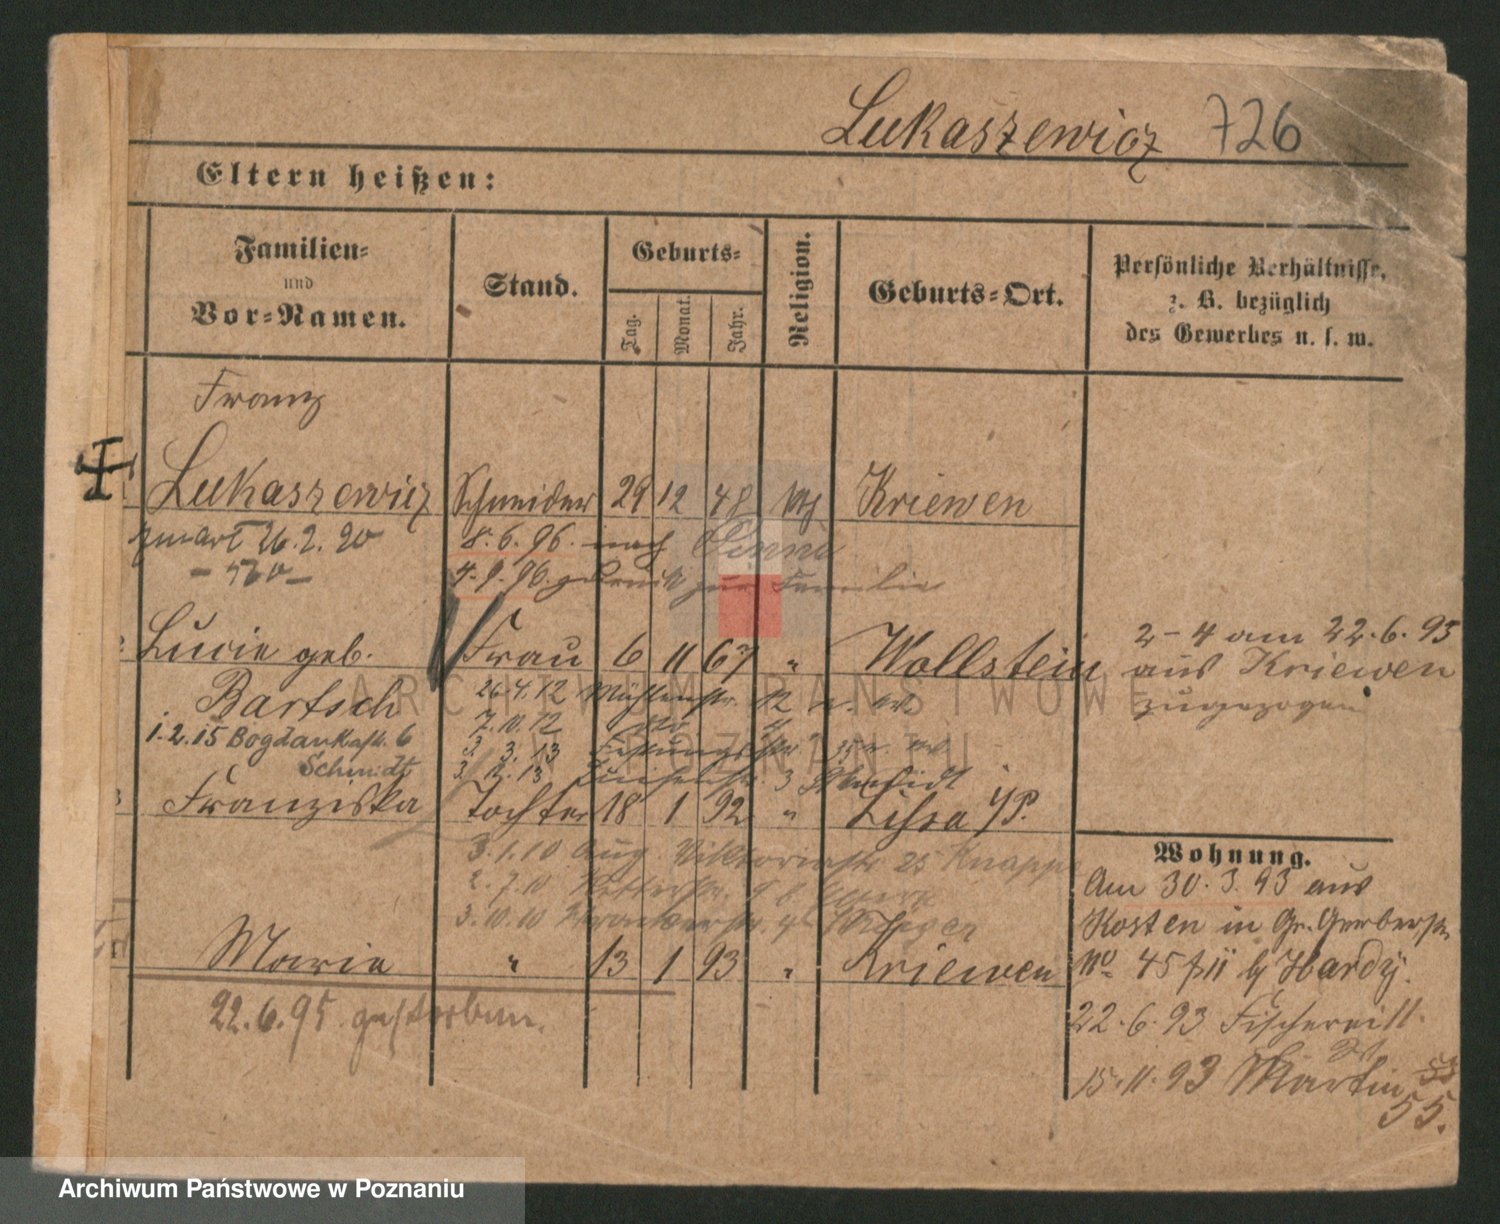 Lukaszewicz 726
Eltern heißen:
Familien-
und
Vor-Namen.
Stand.
Geburts-
Tag.
Monat.
Jahr.
Religion.
Geburts-Ort.
Persönliche Verhältnisse,
z. B. bezüglich
des Gewerbes u. s. w.
Franz
Lukaszewicz Schneider 29 12 48 Kriewen
26.2.20
8.6.96. nach
4.9.96. zurück zur Familie
2 Lucie geb. Frau 6 11 67 " Wollstein
2-4 am 22.6.93
aus Kriewen
zugezogen
Bartsch
26.4.12 Mühlenstr. 12
7.10.12
1.2.15 Bogdankastr. 6
3. 3. 13
Schmidt
3 Franziska Tochter 18 1 92 " Lissa i/P.
3.1.10 Aug. Viktoriastr 25 Knappe
2.7.10 Ritterstr. 9
3.10.10
Wohnung.
Am 30.3.93 aus
Kosten in Gr. Gerberstr.
No 45 pII bj Hardy.
Marie " 13 1 93 " Kriewen
22.6.95 gestorben.
22.6.93 Fischerei 11.
15.11.93 St Martin 53
55.
ARCHIWUM PAŃSTWOWE
W POZNANIU
Archiwum Państwowe w Poznaniu